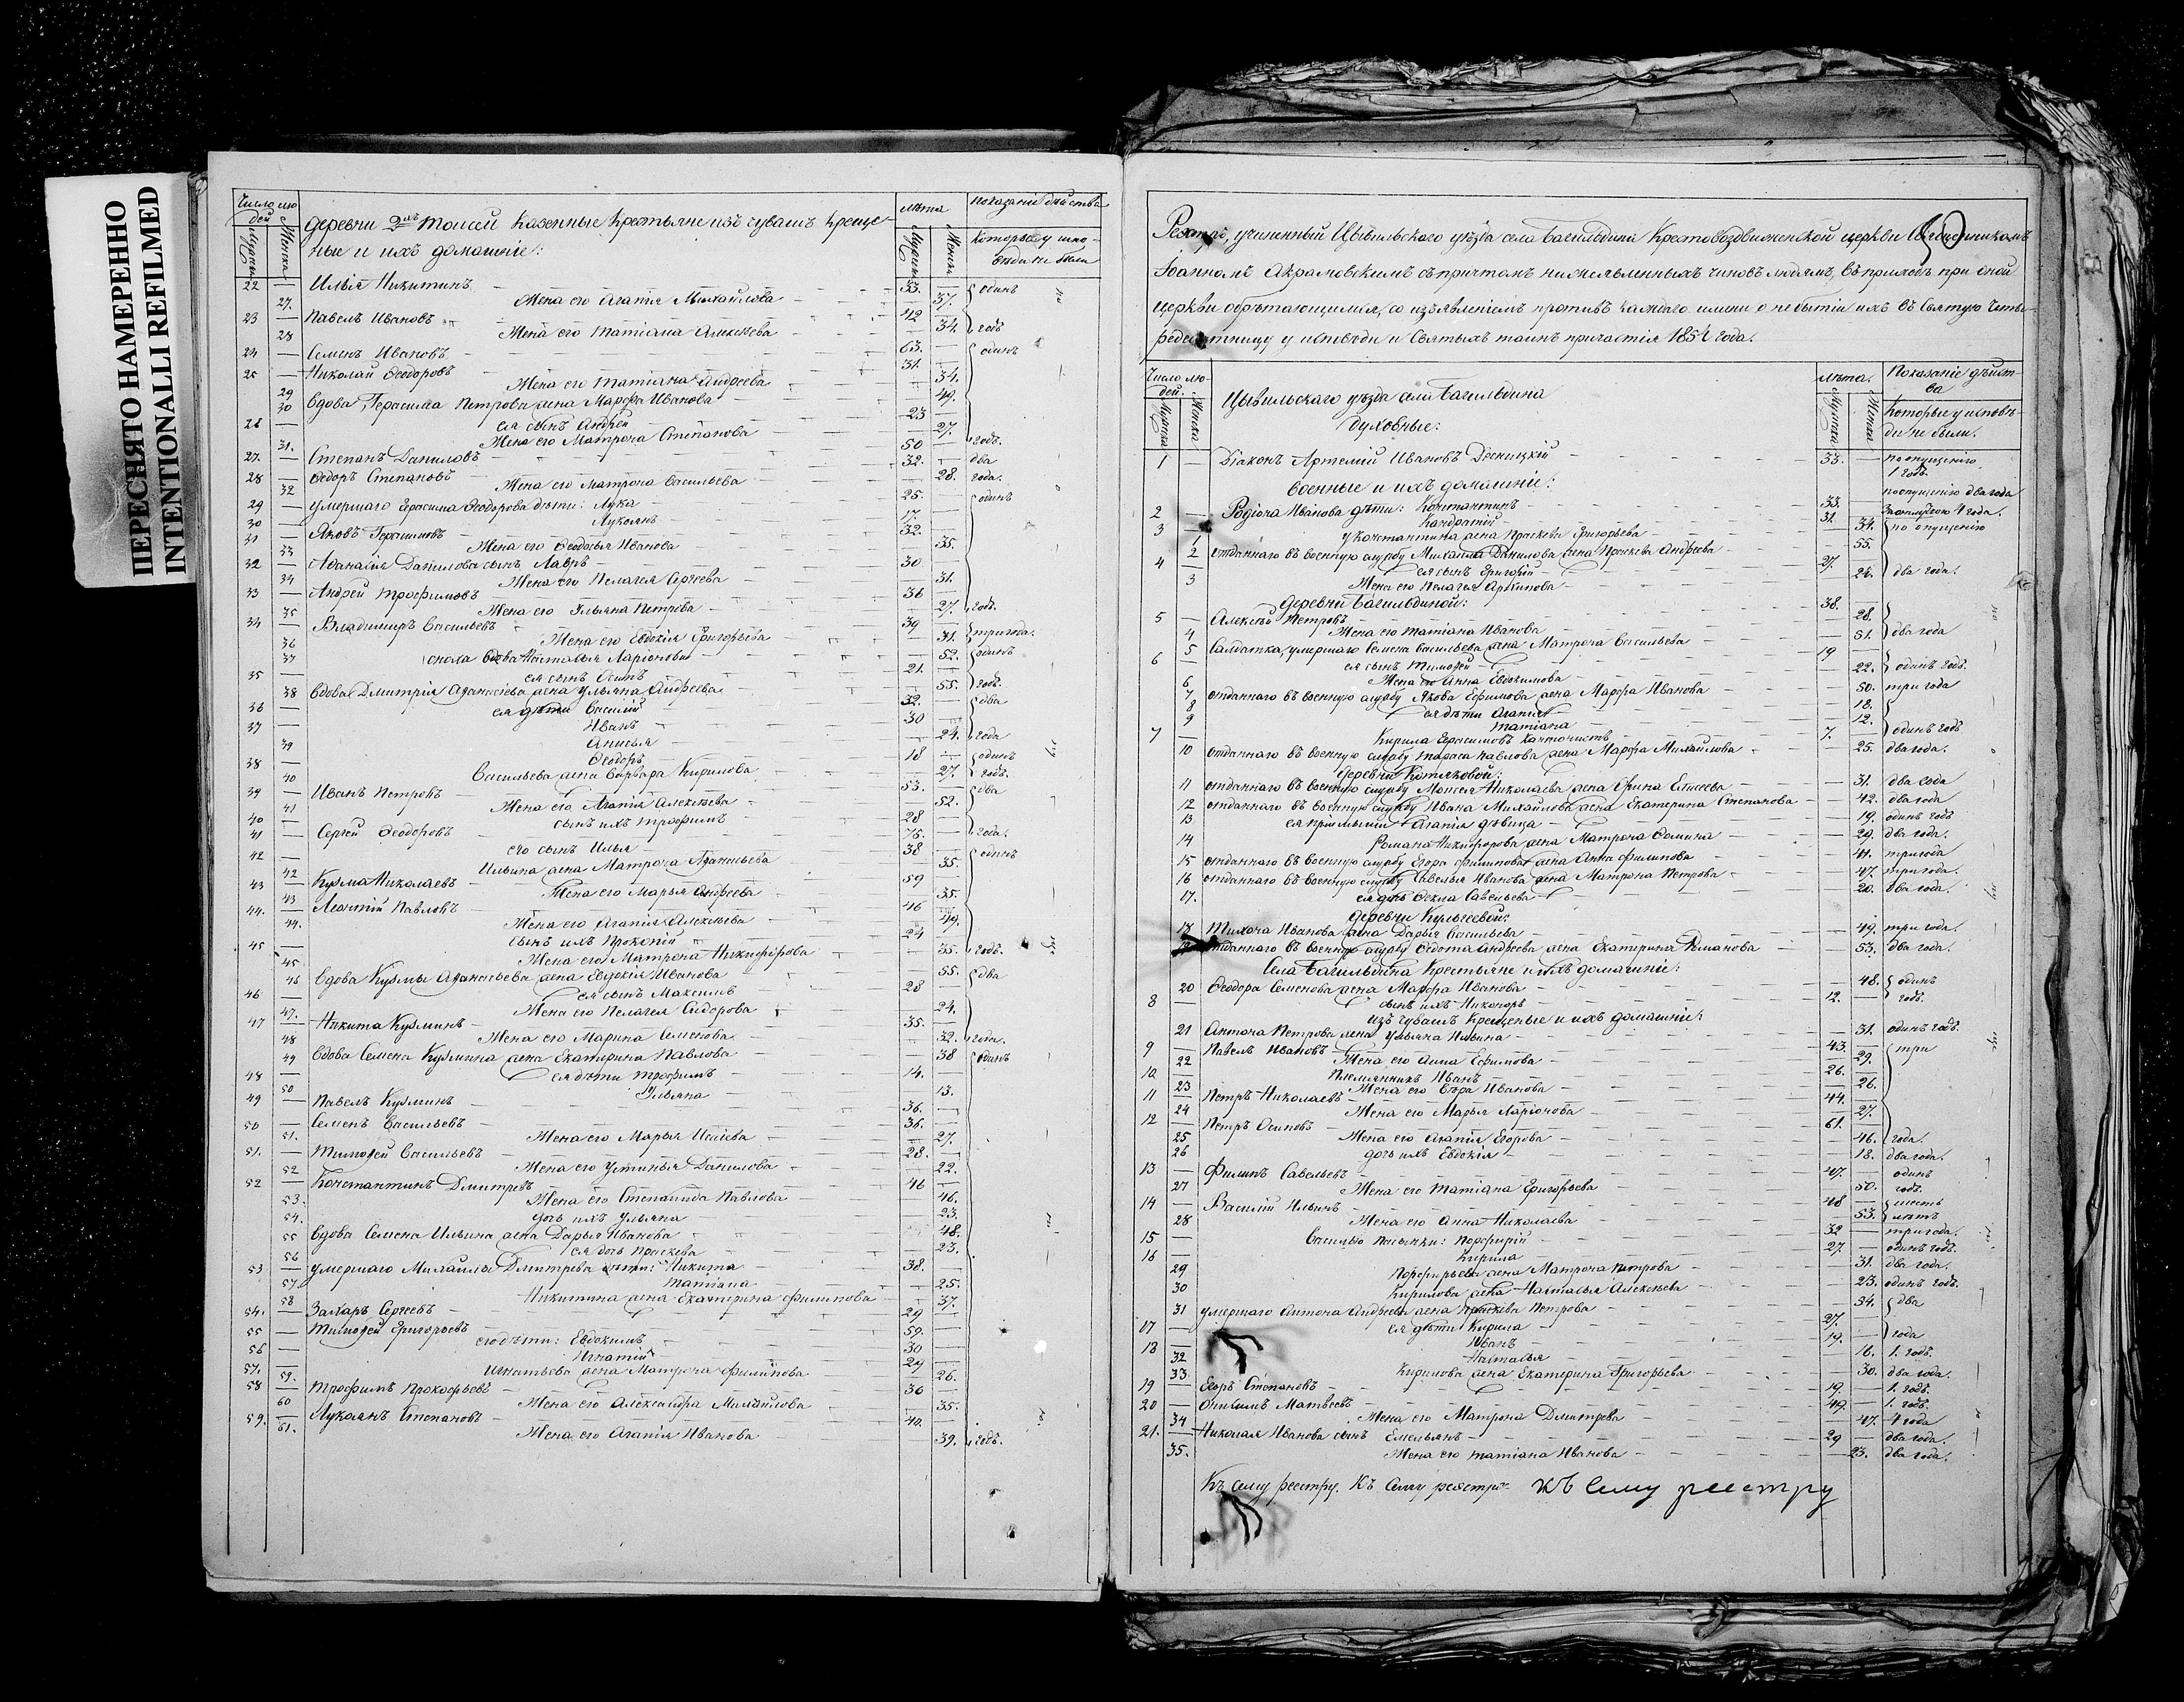 ПЕРЕСНЯТО НАМЕРЕННО
INTENTIONALLI REFILMED
Число лю-
дей
Мужска
Женска
деревни 2ой Тоисей Казенные Крестьяне изъ чувашъ креще-
ные и ихъ домашніе:
лѣта
Мужска
Женска
Показаніе дѣйства
Которые у испо-
вѣди не были
22 — Илья Никитинъ 53. — одинъ
— 27. Жена его Агапія Михайлова — 37.
23 — Павелъ Ивановъ 42 —
— 28 Жена его Татіана Алексѣева — 34. годъ
24 — Семенъ Ивановъ 63. — одинъ
25 — Николай Ѳеодоровъ 31. —
— 29 Жена его Татіана Андреева — 34.
— 30 Вдова, Герасима Петрова жена Марѳа Иванова — 49.
26 — ея сынъ Андрей 23 —
— 31. Жена его Матрона Степанова — 27.
27. — Степанъ Даниловъ 50 — годъ.
28 — Ѳедоръ Степановъ 32. — два
— 32 Жена его Матрона Васильева — 28. года.
29 — умершаго Герасима Ѳеодорова дѣти: Лука 25. — одинъ
30 — Лукоянъ 17. —
31 — Яковъ Герасимовъ 32. —
— 33 Жена его Ѳеодосья Иванова — 35.
32 — Аѳанасія Данилова сынъ Лавръ 30 —
— 34 Жена его Пелагея Сергеева — 31.
33 — Андрей Трофимовъ 36 —
— 35 Жена его Ульяна Петрова — 27. годъ.
34 — Владимиръ Васильевъ 39 —
— 36 Жена его Евдокія Григорьева — 31. три года.
— 37 сноха вдова Наталья Ларіонова — 52. одинъ
35 — ея сынъ Осипъ 21. —
— 38 Вдова Дмитрія Аѳанасіева жена Ульяна Андреева — 55. годъ.
36 — ея дѣти Василій 32. — два
37 — Иванъ 30 —
— 39 Анисья — 24. года
38 — Ѳеодоръ 18 — одинъ
— 40 Васильева жена Варвара Кирилова — 27. годъ.
39 — Иванъ Петровъ 53. — два
— 41 Жена его Агапія Алексѣева — 52.
40 — сынъ ихъ Трофимъ 28 —
41 — Сергей Ѳеодоровъ 75. — года.
42 — его сынъ Илья 38 — одинъ
— 42 Ильина жена Матрона Аѳанасьева — 35.
43 — Кузма Николаевъ 59 —
— 43 Жена его Марья Андреева — 35.
44. — Леонтій Павловъ 46 —
— 44. Жена его Агапія Алексѣева — 49.
45 — сынъ ихъ Прокопій 24 —
— 45 Жена его Матрона Никифорова — 35. годъ.
— 46 Вдова Кузмы Аѳанасьева жена Евдокія Иванова — 55. два
46 — ея сынъ Максимъ 28 —
— 47. Жена его Пелагея Сидорова — 24.
47 — Никита Кузминъ 35. —
— 48 Жена его Марина Семенова — 32. года.
— 49 Вдова Семена Кузмина жена Екатерина Павлова — 38 одинъ
48 — ея дѣти Трофимъ 14. —
— 50 Ульяна — 13.
49 — Павелъ Кузминъ 36. —
50 — Семенъ Васильевъ 36. —
— 51. Жена его Марья Исаева — 27.
51. — Тимоѳей Васильевъ 28. —
— 52 Жена его Устинья Данилова — 22.
52 — Константинъ Дмитревъ 46 —
— 53. Жена его Степанида Павлова — 46.
— 54. дочь ихъ Ульяна — 23.
— 55 Вдова Семена Ильина жена Дарья Иванова — 48.
— 56 ея дочь Прасковья — 23.
53 — умершаго Михаилы Дмитрева дѣти: Никита 38. —
— 57. Татіана — 25.
— 58 Никитина жена Екатерина Филипова — 37.
54. — Захаръ Сергеевъ 29 —
55 — Тимоѳей Григорьевъ 59. —
56 — его дѣти: Евдокимъ 30 —
57. — Игнатій 29 —
— 59. Игнатьева жена Матрона Филипова — 26.
58 — Трофимъ Прокофьевъ 36 —
— 60 Жена его Александра Михайлова — 35.
59. — Лукоянъ Степановъ 40. —
— 61. Жена его Агапія Иванова — 39. годъ.
Реестръ, учиненный Цывильскаго уѣзда села Багильдина Крестовоздвиженской церкви Священникомъ
Іоанномъ Акрамовскимъ съ причтомъ нижеявленныхъ чиновъ людямъ, въ приходѣ при оной
церкви обрѣтающимся, со изъявленіемъ противъ каждаго имени о небытіи ихъ въ Святую Четы-
редесятницу у исповѣди и Святыхъ таинъ причастія 1851 года.
Число лю-
дей.
Мужска
Женска
Цывильскаго уѣзда села Багильдина
Духовные:
лѣта.
Мужска
Женска
Показаніе дѣйст-
ва
Которые у исповѣ-
ди не были.
1 — Діаконъ Артемій Ивановъ Десницкій 33. — по опущенію
1 годъ.
Военные и ихъ домашніе:
2 — Родіона Иванова дѣти: Константинъ 33. — по опущенію два года
3 — Кондратій 31. — 4 года.
— 1 Константина жена Прасковья Григорьева — 34. по опущенію
— 2 отданнаго въ военную службу Михаила Данилова жена Прасковья Андреева — 55.
4 — ея сынъ Григорій 27. —
— 3 Жена его Пелагея — 26. два года.
деревни Багильдиной:
5 — Алексѣй Петровъ 38. —
— 4 Жена его Татіана Иванова — 28.
— 5 Салдатка, умершаго Семена Васильева жена Матрона Васильева — 51. два года
6 — ея сынъ Тимоѳей 19 —
— 6 Жена его Анна Евдокимова — 22. одинъ годъ.
— 7 отданнаго въ военную службу Якова Ефимова жена Марѳа Иванова — 50. три года
— 8 ея дѣти Агапія — 18.
— 9 Татіана — 12.
7 — Кирила Герасимовъ кантонистъ 7. — одинъ годъ
— 10 отданнаго въ военную службу Тараса Павлова жена Марѳа Михайлова — 25. два года.
деревни Котяковой:
— 11 отданнаго въ военную службу Моисея Николаева жена Ирина Елисеева — 31. два года
— 12 отданнаго въ военную службу Ивана Михайлова жена Екатерина Степанова — 42. два года
— 13 ея пріемышъ Агапія дѣвица — 19. одинъ годъ
— 14 Романа Никифорова жена Матрона Ѳомина — 29. два года.
— 15 отданнаго въ военную службу Егора Филипова жена Анна Филипова — 41. три года
— 16 отданнаго въ военную службу Савелья Иванова жена Матрона Петрова — 47. три года.
— 17. ея дочь Ѳекла Савельева — 20. два года.
деревни Кульгеевой:
— 18 Тихона Иванова жена Дарья Васильева — 49. три года
— 19 отданнаго въ военную службу Ѳедота Андреева жена Екатерина Романова — 53. два года.
Села Багильдина Крестьяне и ихъ домашніе:
— 20 Ѳеодора Семенова жена Марѳа Иванова — 48. одинъ
8 — сынъ ихъ Никоноръ 12. — годъ.
изъ чувашъ крещеные и ихъ домашніе:
— 21 Антона Петрова жена Ульяна Ильина — 31. одинъ годъ.
9 — Павелъ Ивановъ 43. — три
— 22 Жена его Анна Ефимова — 29.
10 — Племянникъ Иванъ 26. —
— 23 Жена его Вѣра Иванова — 26.
11 — Петръ Николаевъ 44. —
— 24 Жена его Марья Ларіонова — 27.
12 — Петръ Осиповъ 61. —
— 25 Жена его Агапія Егорова — 46. года.
— 26 дочь ихъ Евдокія — 18. два года.
13 — Филипъ Савельевъ 47. — одинъ
— 27 Жена его Татіана Григорьева — 50. годъ.
14 — Василій Ильинъ 48 — шесть
— 28 Жена его Анна Николаева — 53. лѣтъ
15 — Василья пасынки: Порфирій 32 — три года.
16 — Кирила 27. — одинъ годъ.
— 29 Порфирьева жена Матрона Петрова — 31. два года.
— 30 Кирилова жена Наталья Алексѣева — 23. одинъ годъ.
— 31 умершаго Антона Андреева жена Прасковья Петрова — 34. два
17 — ея дѣти Кирила 27. —
18 — Иванъ 19. — года
— 32 Наталья — 16. 1. годъ.
— 33 Кирилова жена Екатерина Григорьева — 30. два года.
19 — Егоръ Степановъ 19. — 1. годъ.
20 — Онисимъ Матвеевъ 49. — 1. годъ.
— 34 Жена его Матрона Дмитрева — 47. 4 года
21. — Николая Иванова сынъ Емельянъ 29 — два года.
— 35. Жена его Татіана Иванова — 23. два года.
Къ сему реестру. Къ Сему реестру Къ Сему реестру